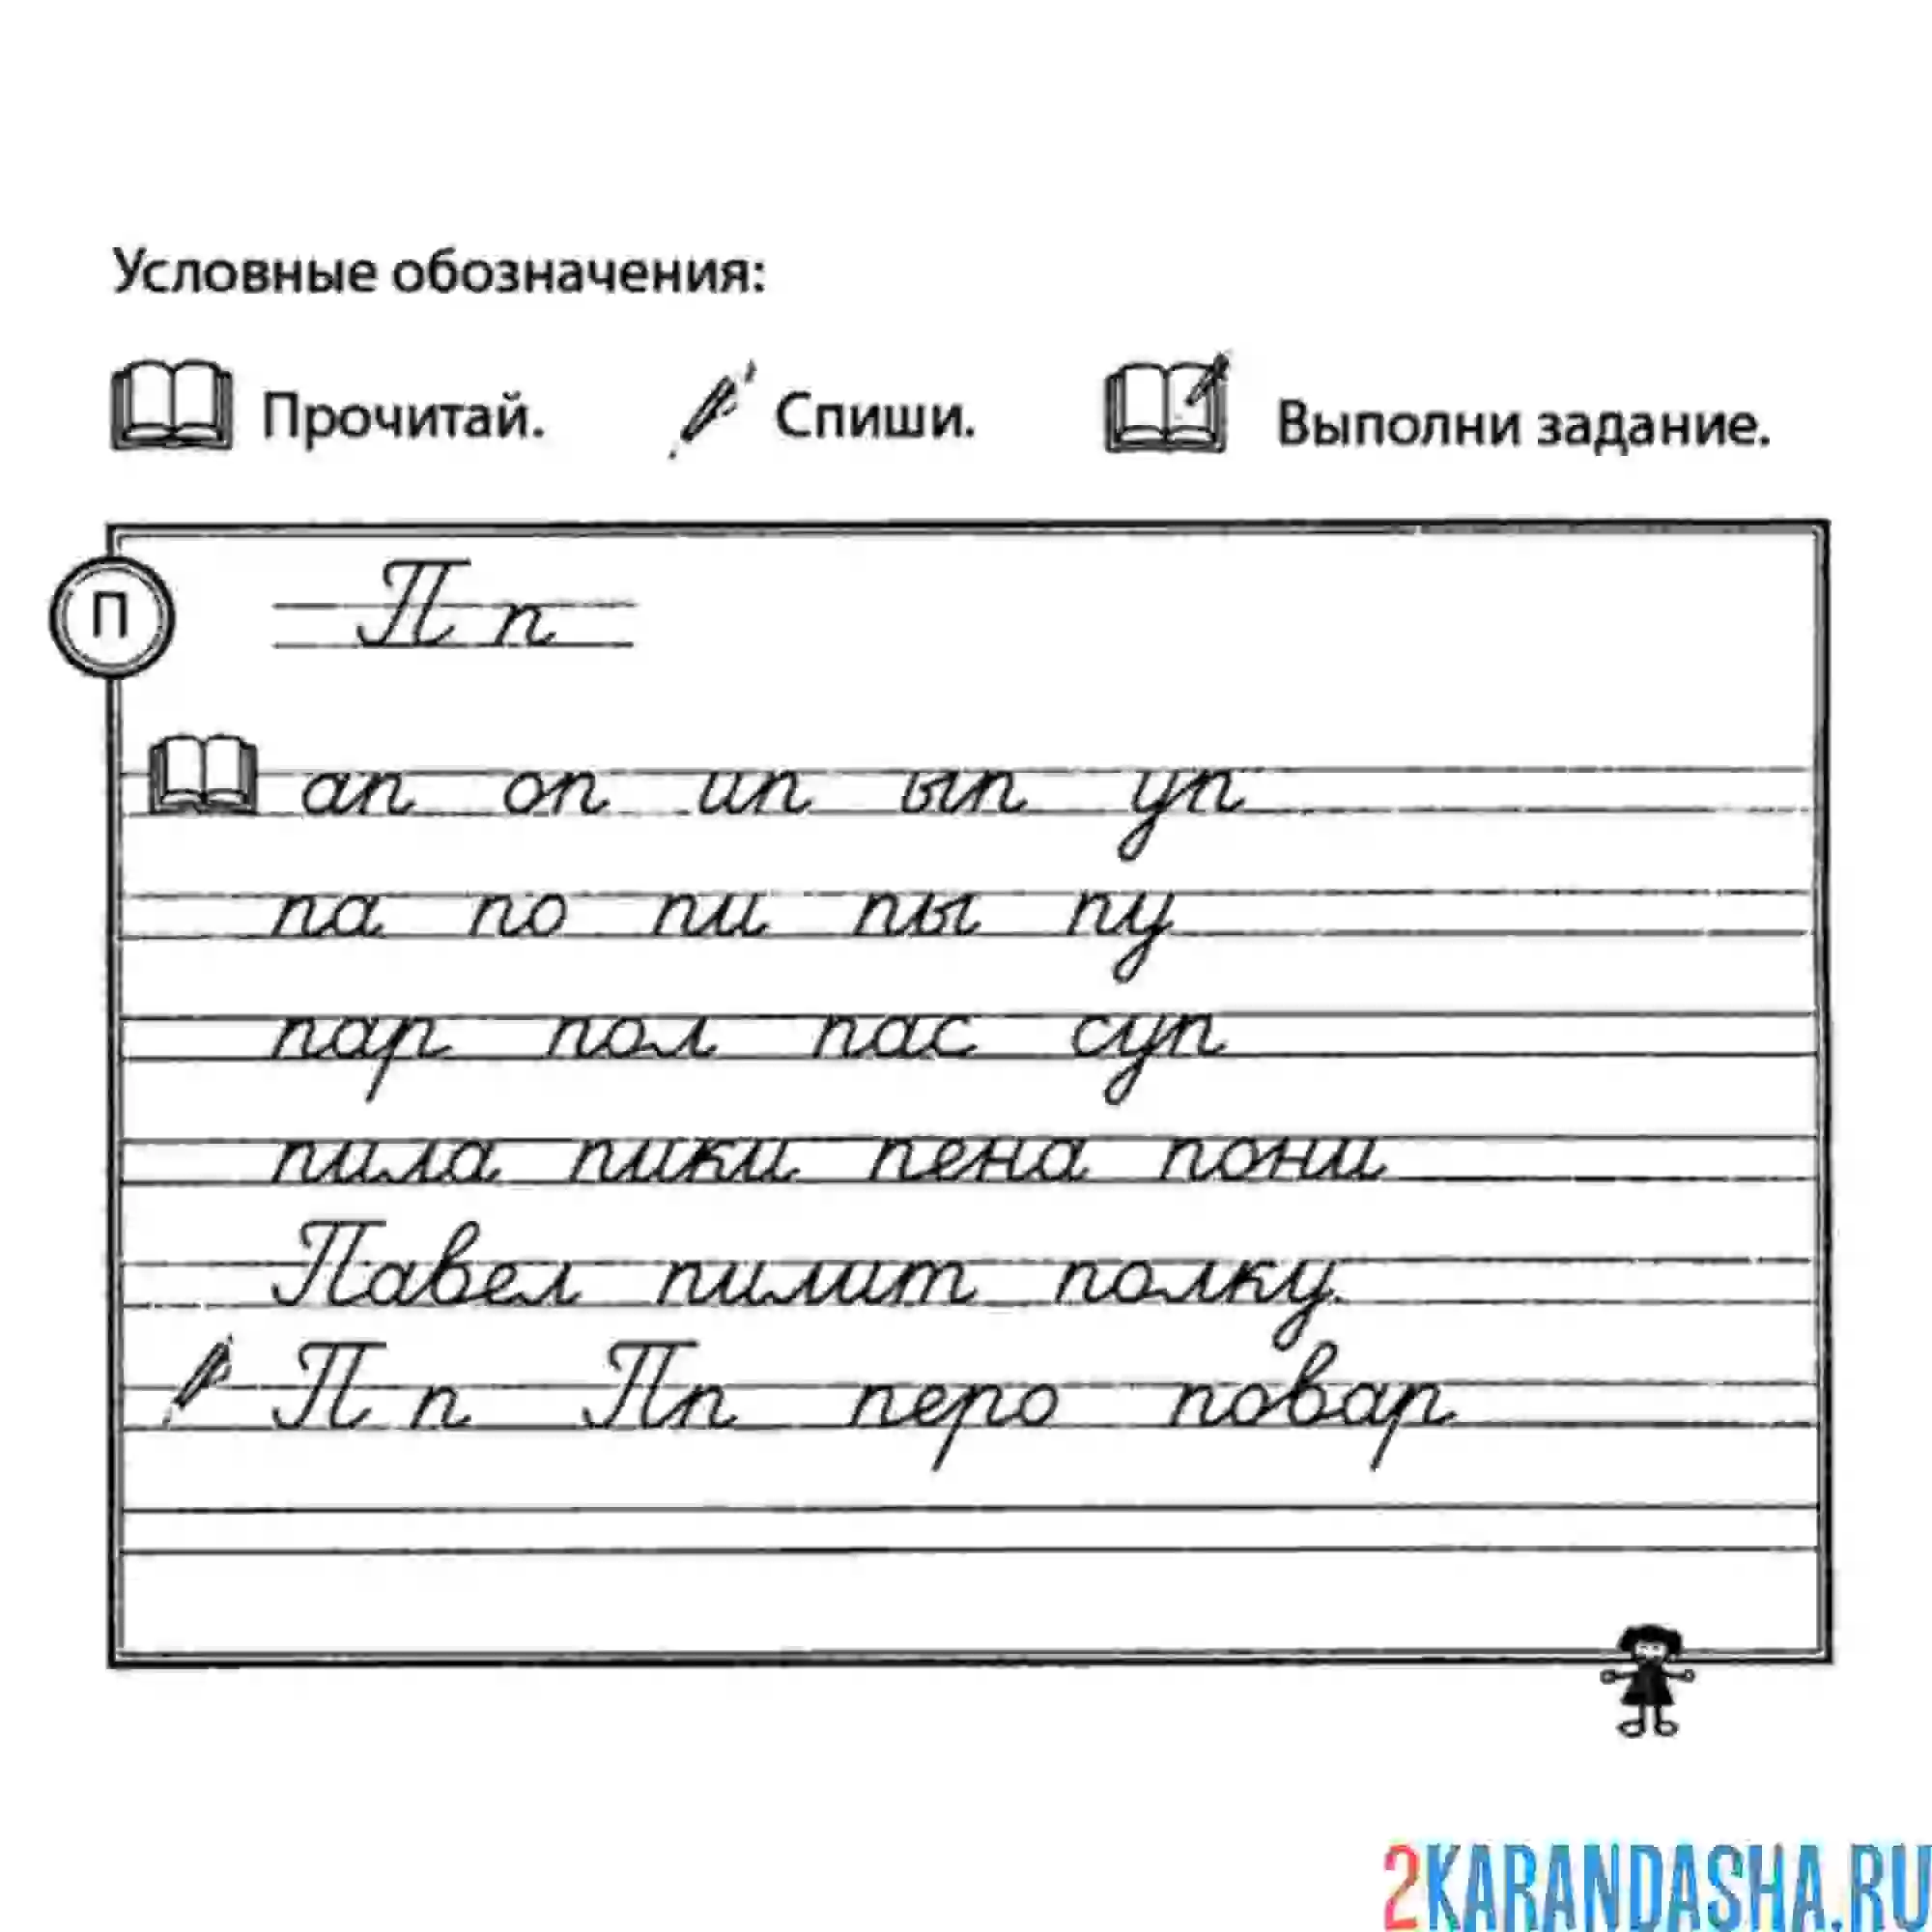 Условные обозначения:
Прочитай. Спиши. Выполни задание.
П
П п
ап оп ип ып уп
па по пи пы пу
пар пол пас суп
пила пики пена пони
Павел пилит полку.
П п Пп перо повар
2KARANDASHA.RU